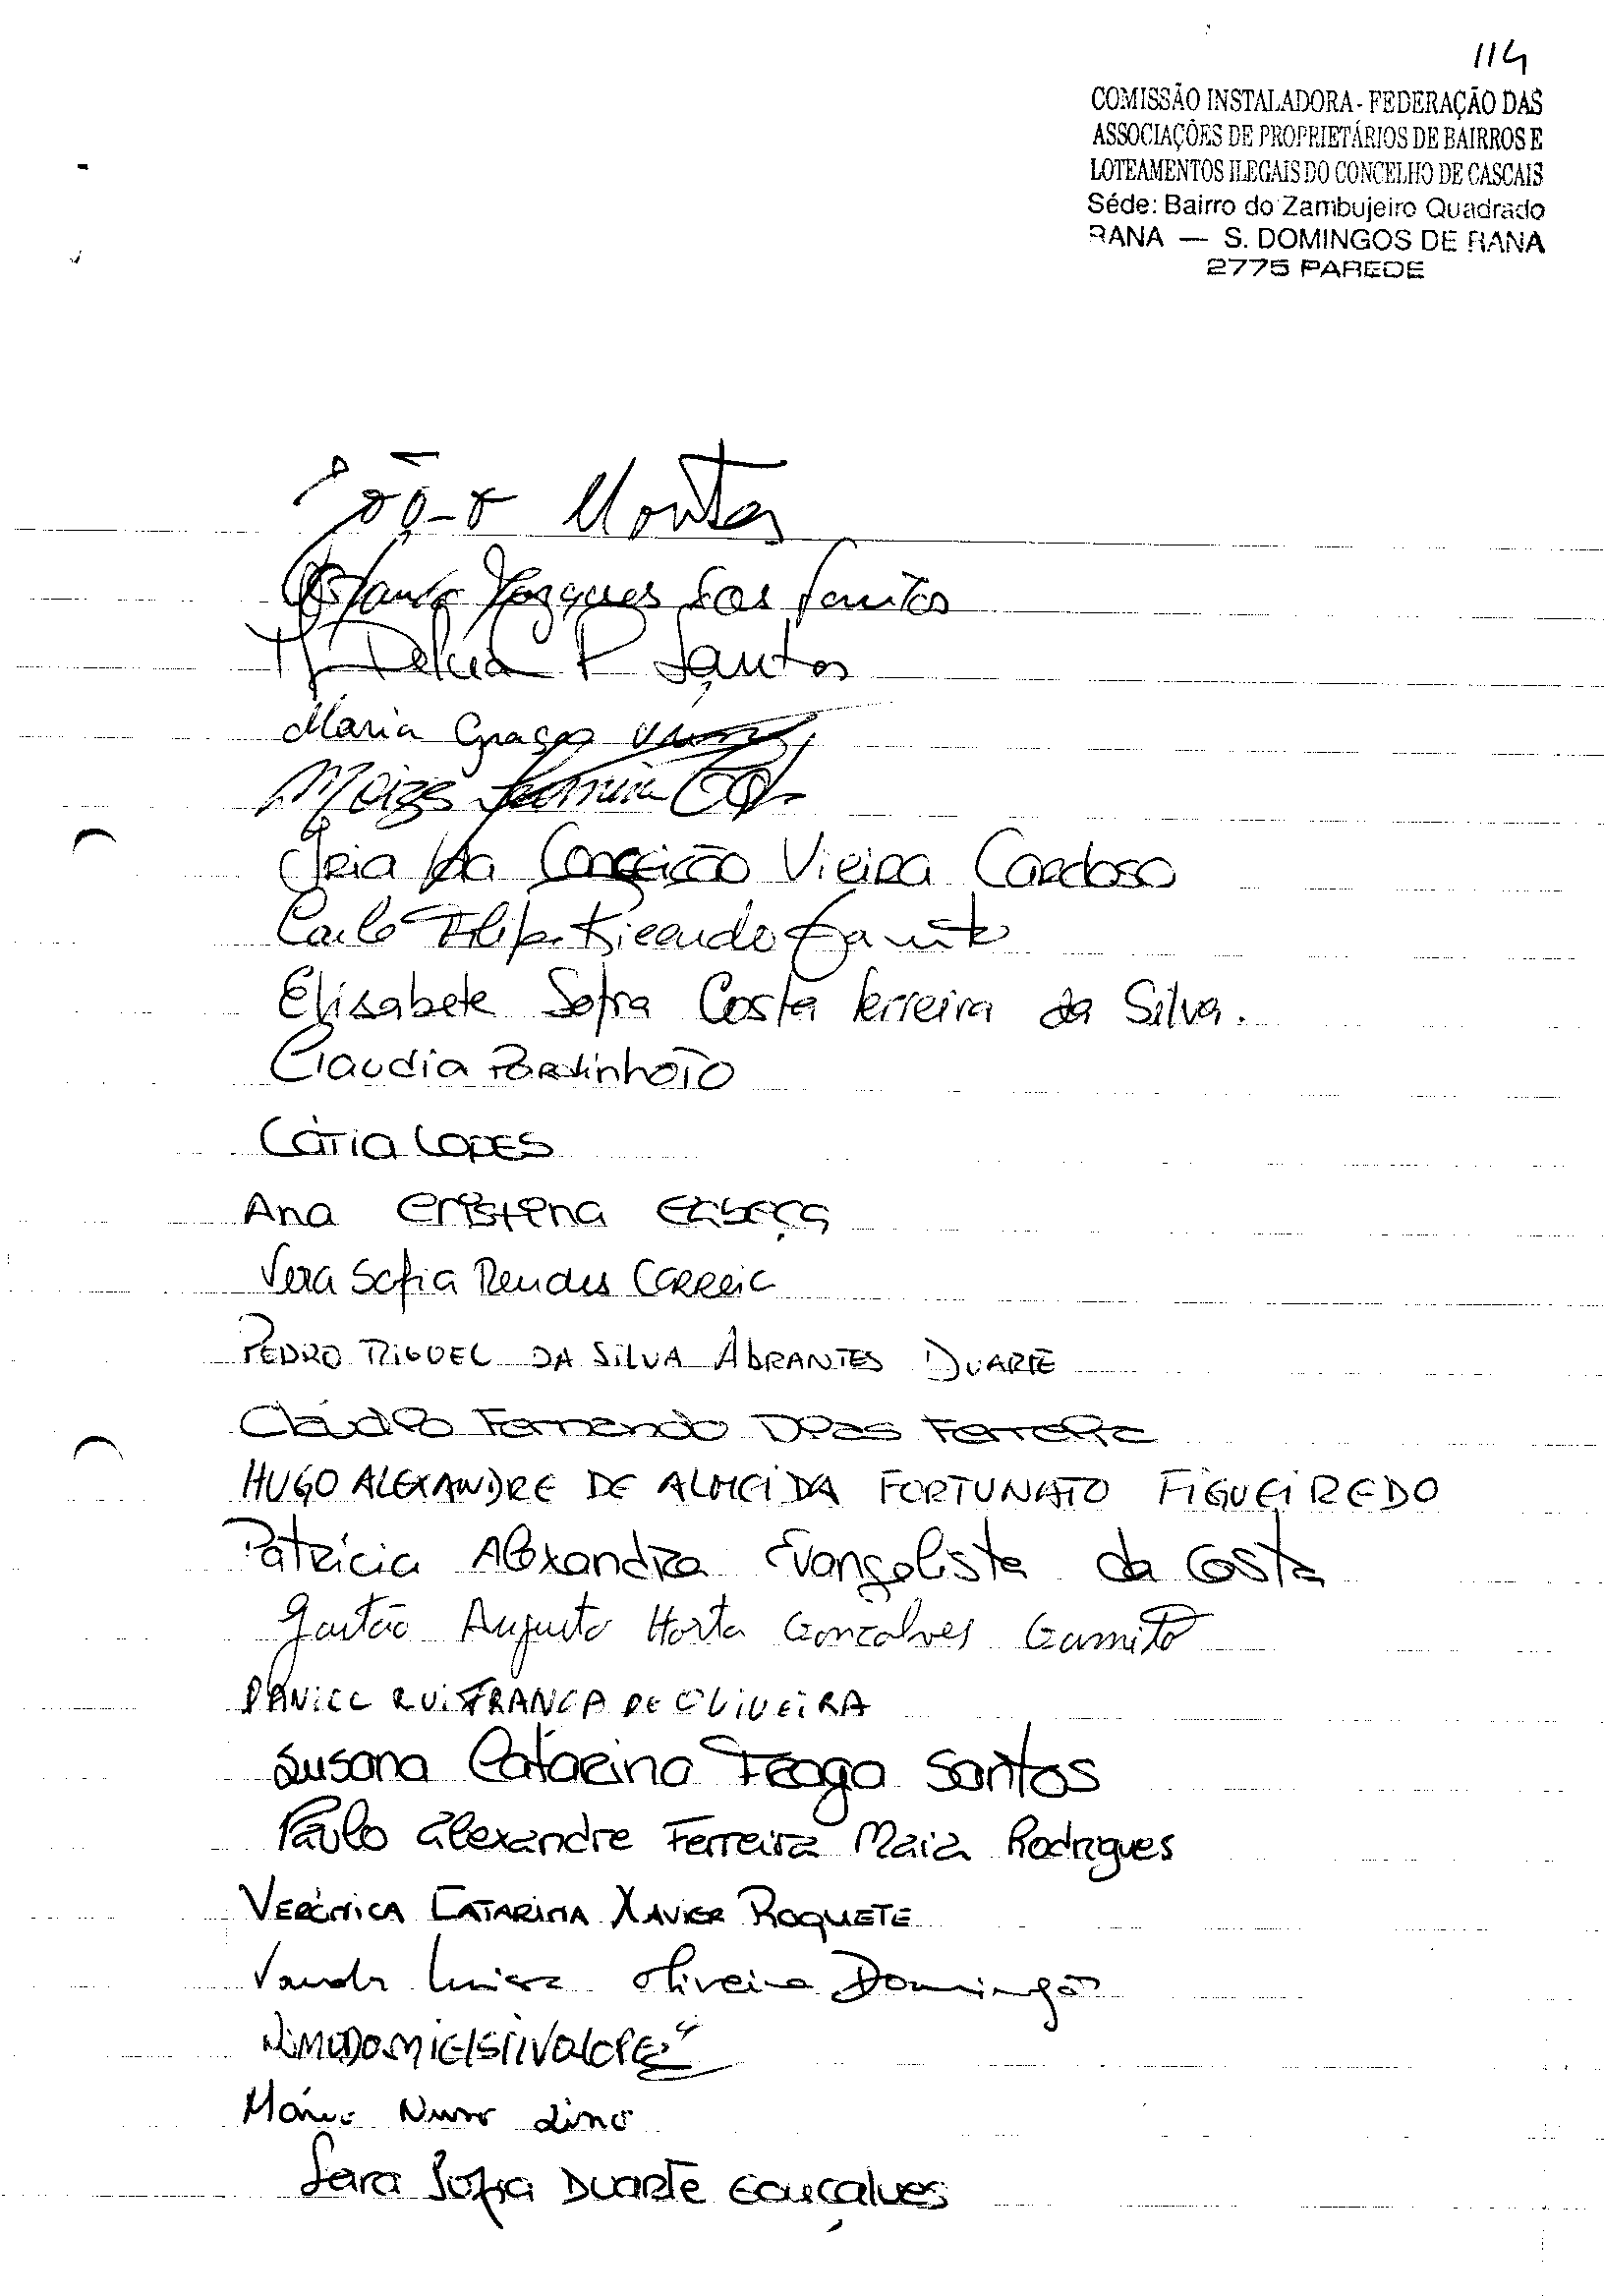 114
COMISSÃO INSTALADORA - FEDERAÇÃO DAS
ASSOCIAÇÕES DE PROPRIETÁRIOS DE BAIRROS E
LOTEAMENTOS ILEGAIS DO CONCELHO DE CASCAIS
Séde: Bairro do Zambujeiro Quadrado
RANA — S. DOMINGOS DE RANA
2775 PAREDE
João
dos Santos
P Santos
Maria
da Conceição Vieira Cardoso
Filipe Ricardo
Elisabete Sofia Costa Ferreira da Silva.
Claudia
Cátia LOPES
Ana Cristina Cabeça
Vera Sofia Mendes Correia
PEDRO MIGUEL DA SILVA ABRANTES DUARTE
Cláudio Fernando Dias Ferreira
HUGO ALEXANDRE DE ALMEIDA FORTUNATO FIGUEIREDO
Patrícia Alexandra Evangelista da Costa
Gastão Augusto Horta Gonçalves Gamito
DANIEL RUI FRANCA DE OLIVEIRA
Susana Catarina Fraga Santos
Paulo Alexandre Ferreira Maia Rodrigues
VERÓNICA CATARINA XAVIER ROQUETE
Vanda Luisa Oliveira Domingos
Nuno Lino
Sara Sofia Duarte Gonçalves